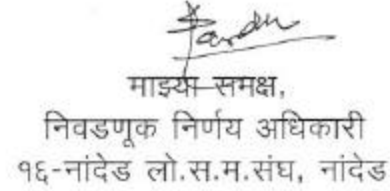 माझ्या समक्ष,
निवडणूक निर्णय अधिकारी
१६-नांदेड लो.स.म.संघ, नांदेड